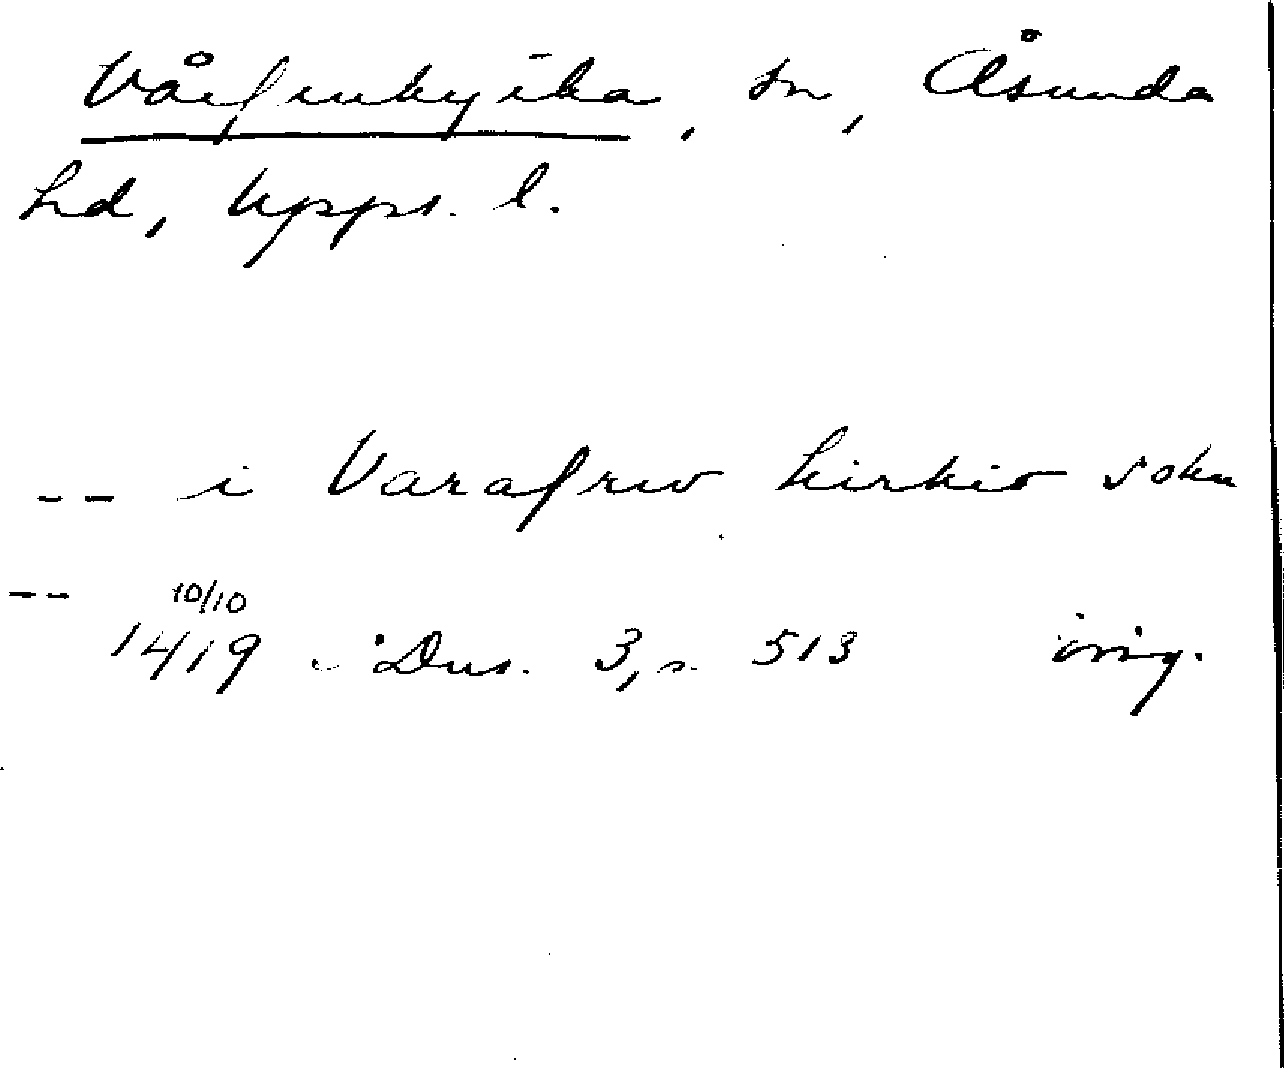 Vårfrukyrka, sn, Åsunda
hd, Upps. l.
-- i Varafrw kirkio sokn
-- 10/10
1419 Dns. 3, s. 513 orig.